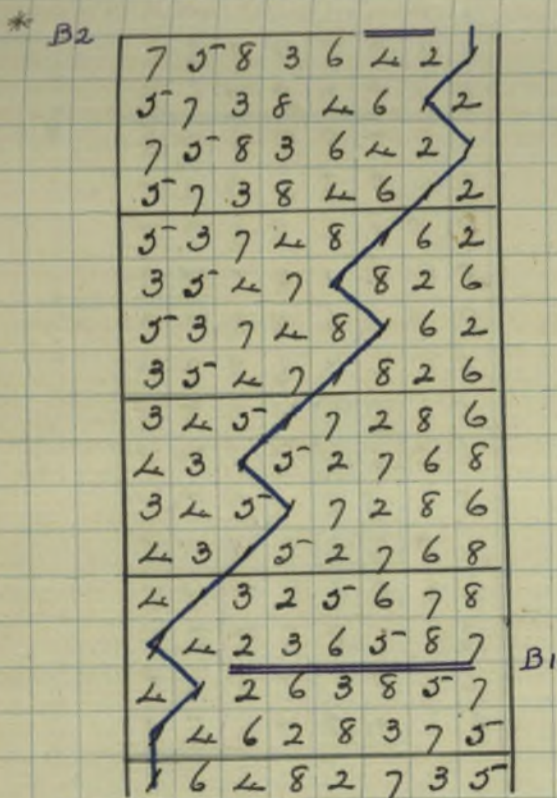 * B2
7 5 8 3 6 4 2 1
5 7 3 8 4 6 1 2
7 5 8 3 6 4 2 1
5 7 3 8 4 6 1 2
5 3 7 4 8 1 6 2
3 5 4 7 1 8 2 6
5 3 7 4 8 1 6 2
3 5 4 7 1 8 2 6
3 4 5 1 7 2 8 6
4 3 1 5 2 7 6 8
3 4 5 1 7 2 8 6
4 3 1 5 2 7 6 8
4 1 3 2 5 6 7 8
1 4 2 3 6 5 8 7
B1
4 1 2 6 3 8 5 7
1 4 6 2 8 3 7 5
1 6 4 8 2 7 3 5